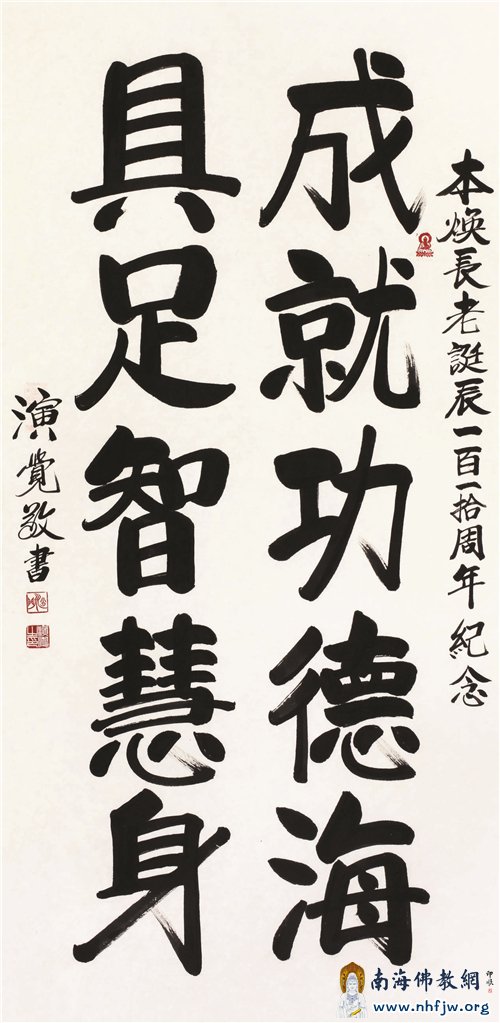 本焕長老誕辰一百一拾周年紀念
成就功德海
具足智慧身
演覺敬書
南海佛教網
www.nhfjw.org